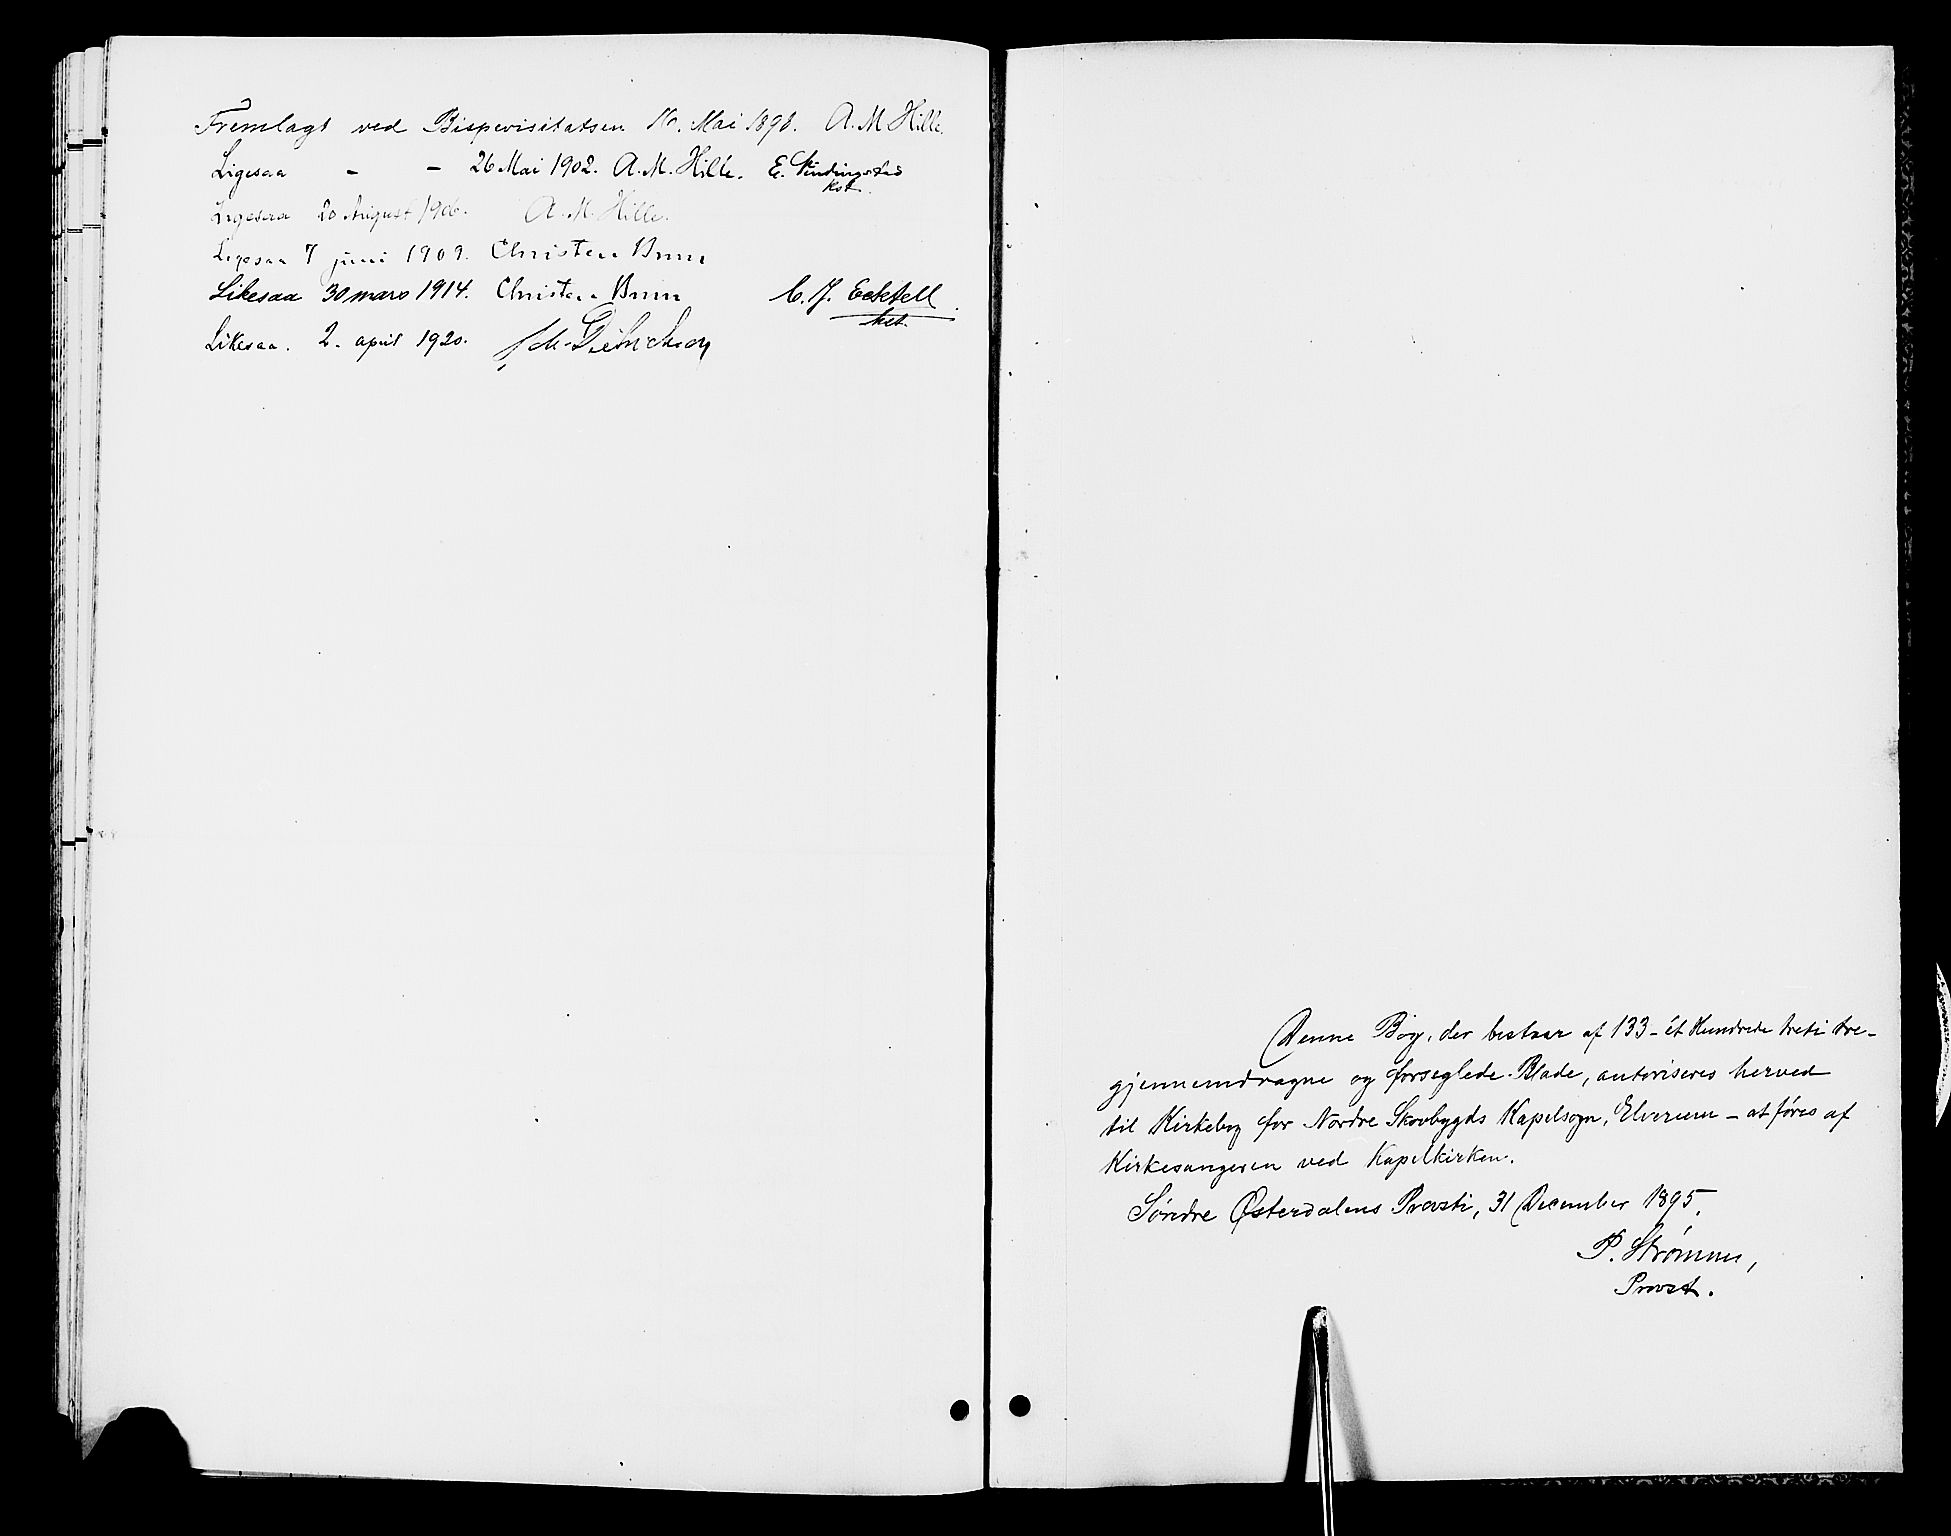 Fremlagt ved Bispevisitatsen 16. Mai 1898. A. M Hille.
Ligesaa - - 26 Mai 1902. A. M. Hille. E.
Kst.
Ligesaa 20 August 1906. A. M. Hille.
Ligesaa 7 juni 1909. Christen Brun
Likesaa 30 mars 1914. Christen Brun C. J. Eckfell
kst.
Likesaa. 2. april 1920.
Denne Bog, der bestaar af 133 - ét Hundrede treti tre -
gjennemdragne og forseglede Blade, autoriseres herved
til Kirkebog for Nordre Skovbygds Kapelsogn, Elverum - at føres af
Kirkesangeren ved Kapelkirken.
Søndre Østerdalens Provsti, 31 December 1895.
P. Strømme,
Provst.